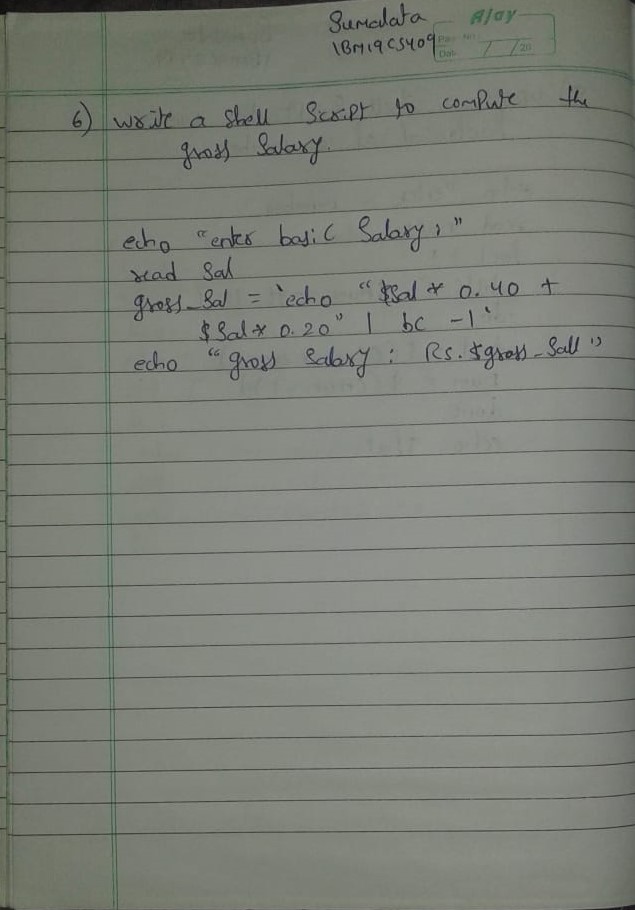 Sumalata
1BM19CS409
Ajay
Page No:
Date / /20
6) Write a Shell Script to compute the
gross Salary.
echo "enter basic Salary: "
read Sal
gross_Sal = `echo "$Sal * 0.40 +
$Sal * 0.20" | bc -l`
echo "gross Salary : Rs. $gross_Sall"